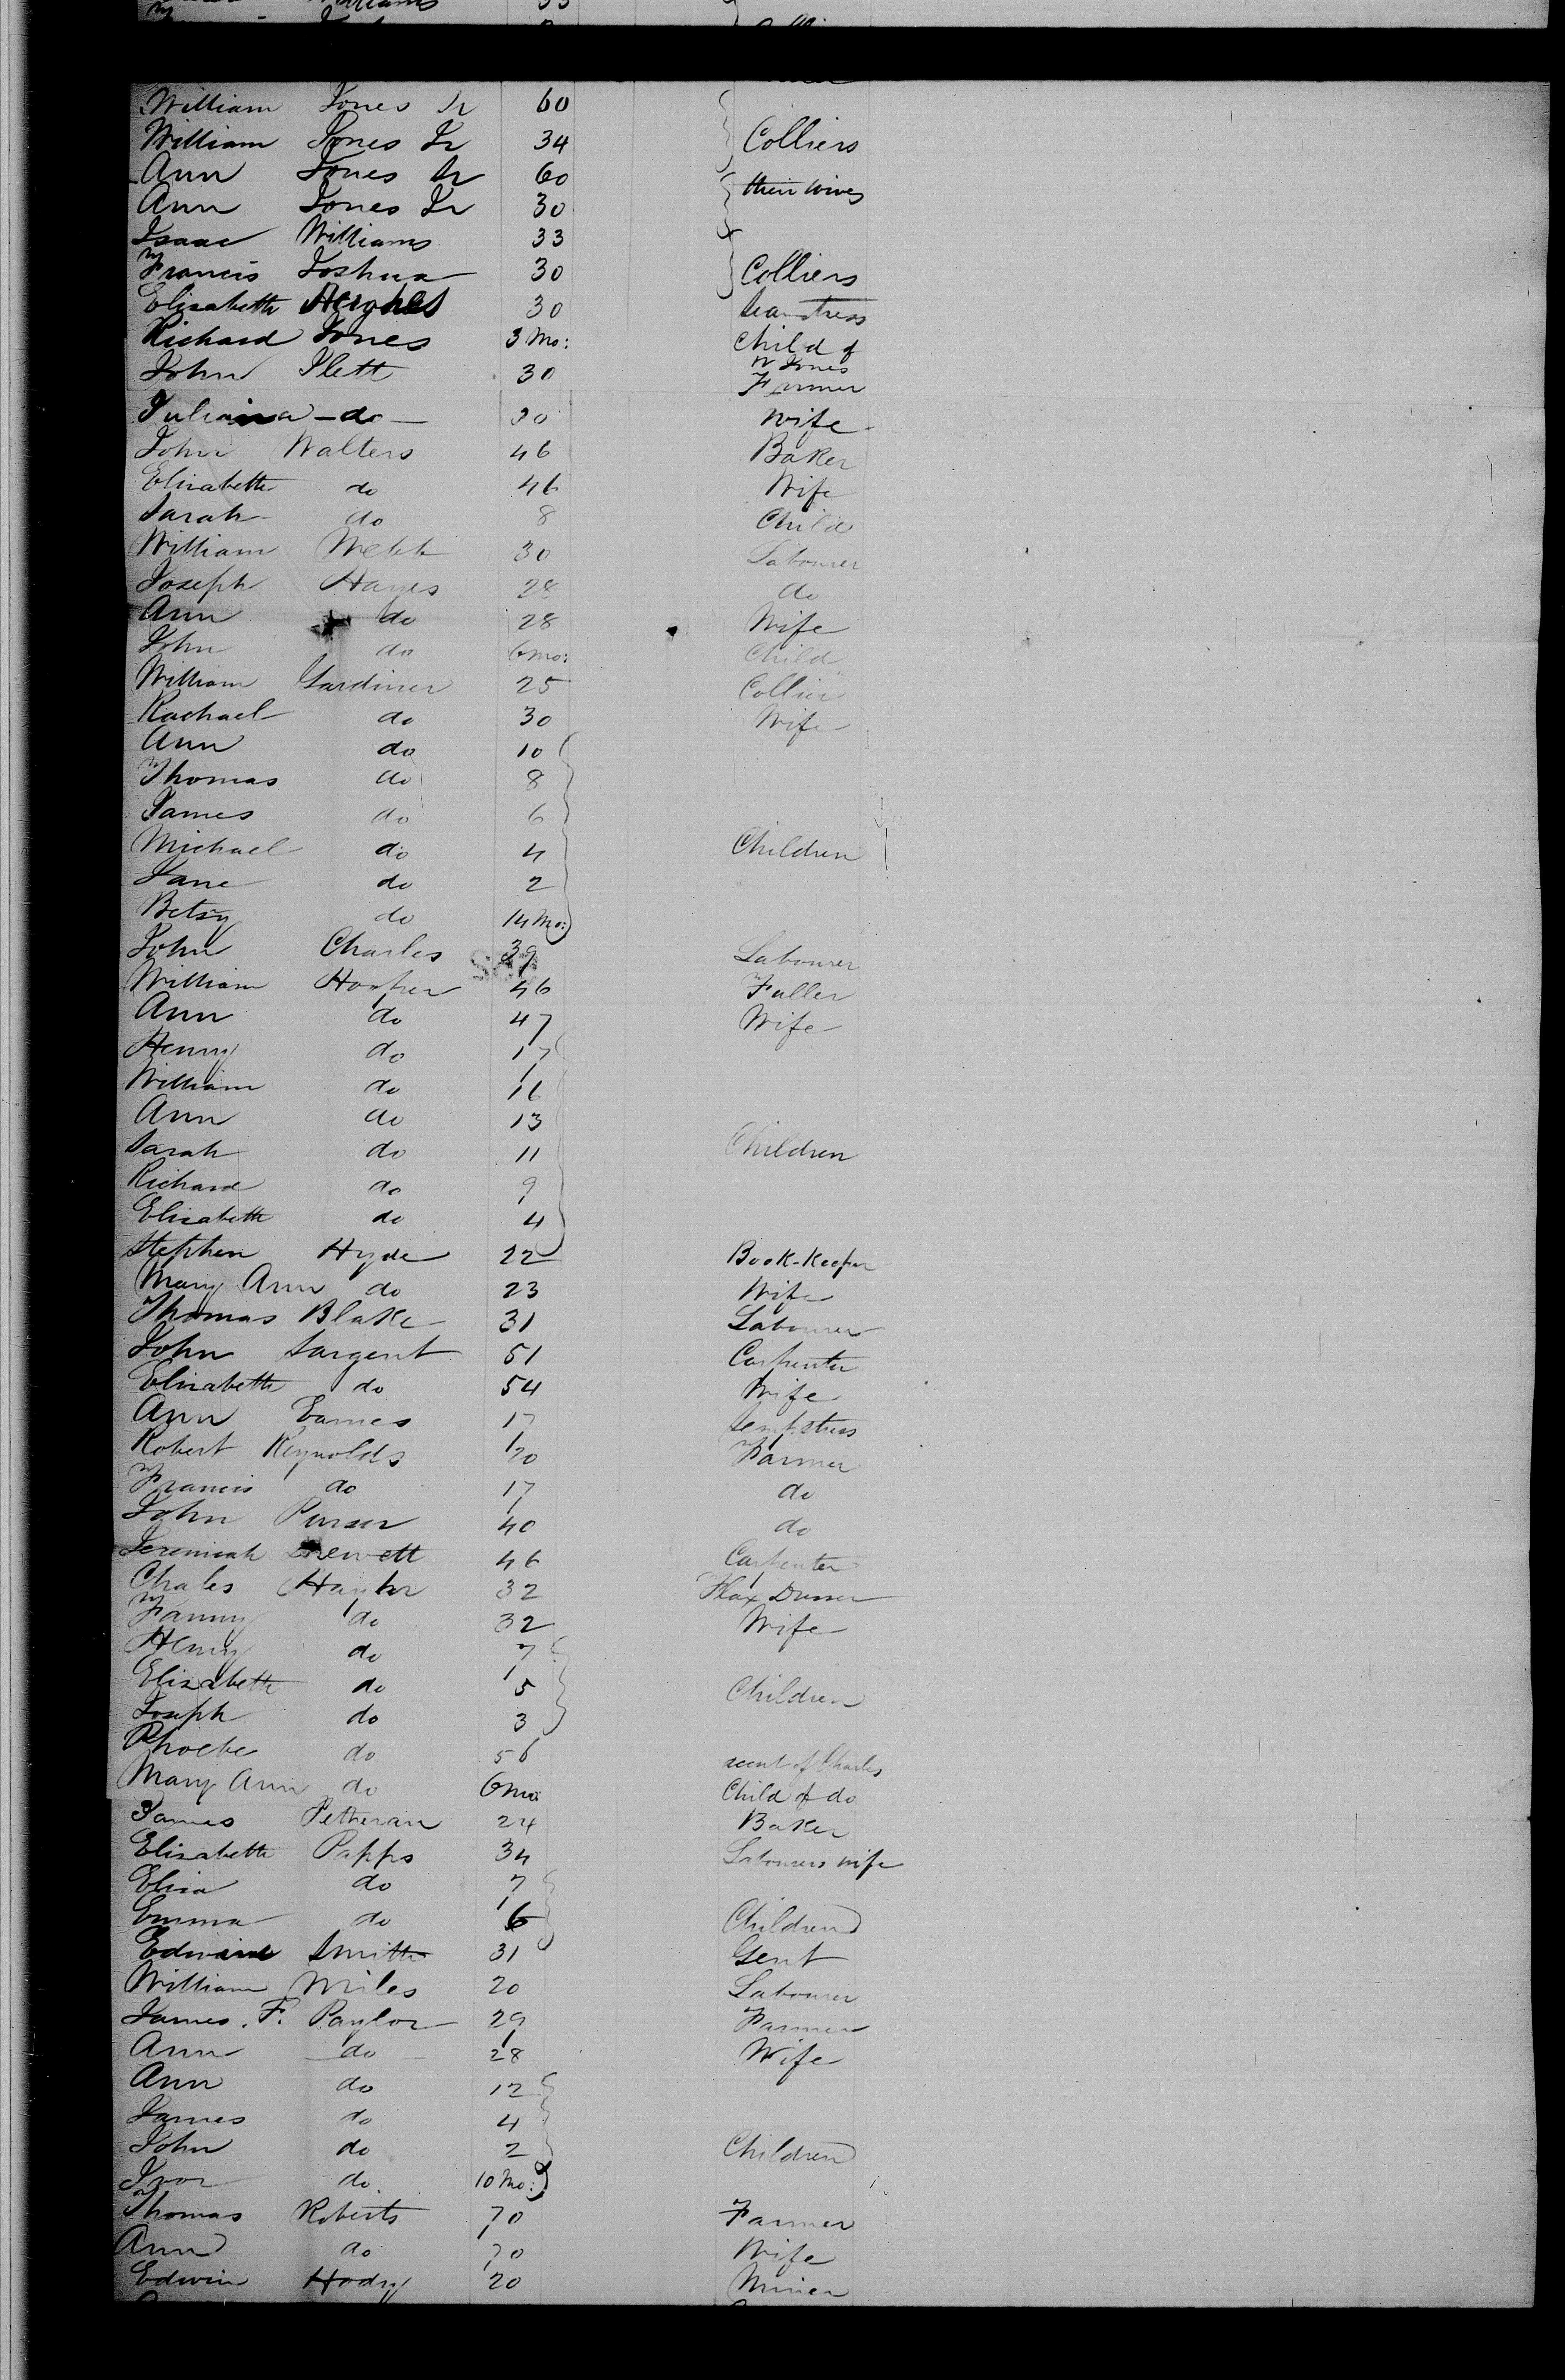 William Jones Sr 60
William Jones Jr 34 Colliers
Ann Jones Sr 60 their wives
Ann Jones Jr 30
Isaac Williams 33
Francis Joshua 30 Colliers
Elisabeth Hughes 30 Seamstress
Richard Jones 3 Mo: Child of W Jones
John Flett 30 Farmer
Juliana do 30 Wife
John Walters 46 Baker
Elisabeth do 46 Wife
Sarah do 8 Child
William Webb 30 Labourer
Joseph Hayes 28 do
Ann do 28 Wife
John do 6 mo: Child
William Gardiner 25 Collier
Rachael do 30 Wife
Ann do 10
Thomas do 8
James do 6
Michael do 4 Children
Jane do 2
Betsy do 14 Mo:
John Charles 39 Labourer
William Hooper 46 Fuller
Ann do 47 Wife
Henry do 17
William do 16
Ann do 13
Sarah do 11 Children
Richard do 9
Elisabeth do 4
Stephen Hyde 22 Book-Keeper
Mary Ann do 23 Wife
Thomas Blake 31 Labourer
John Sargent 51 Carpenter
Elisabeth do 54 Wife
Ann Eames 17 Sempstress
Robert Reynolds 20 Farmer
Francis do 17 do
John Purser 40 do
Jeremiah Drewett 46 Carpenter
Chales Haytor 32 Flax Dresser
Fanny do 32 Wife
Henry do 7
Elizabeth do 5 Children
Joseph do 3
Phoebe do 56 of Charles
Mary Ann do 6 mo Child of do
James Petheran 24 Baker
Elisabeth Papps 34 Labourers wife
Eliza do 7
Emma do 6 Children
Edward Smith 31 Gent
William Miles 20 Labourer
James. F. Paylor 29 Farmer
Ann do 28 Wife
Ann do 12
James do 4
John do 2 Children
Ivor do. 10 Mo:
Thomas Roberts 70 Farmer
Ann do 70 Wife
Edwin Hody 20 Miner